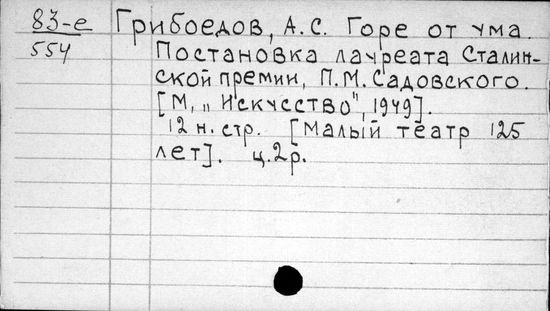 83-е
554
Грибоедов, А.С. Горе от ума.
Постановка лауреата Сталин-
ской премии, П.М. Садовского.
[М, „Искусство", 1949].
12 н. стр. [Малый театр 125
лет]. ц. 2 р.